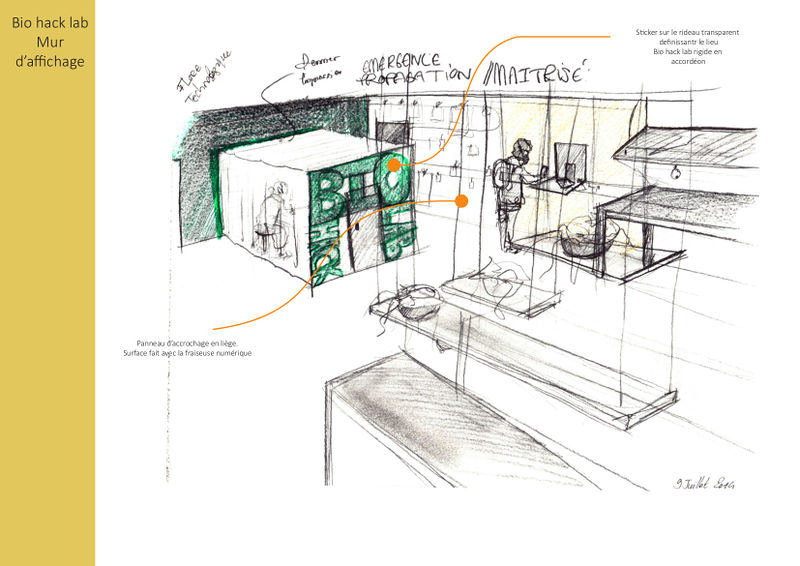 Bio hack lab
Mur
d'affichage
Sticker sur le rideau transparent
definissantr le lieu
Bio hack lab rigide en
accordéon
EMERGENCE
PROPAGATION //MAITRISÉ
Dernier
BIO
HACK
LAB
Panneau d'accrochage en liège.
Surface fait avec la fraiseuse numérique
9 Juillet 2014